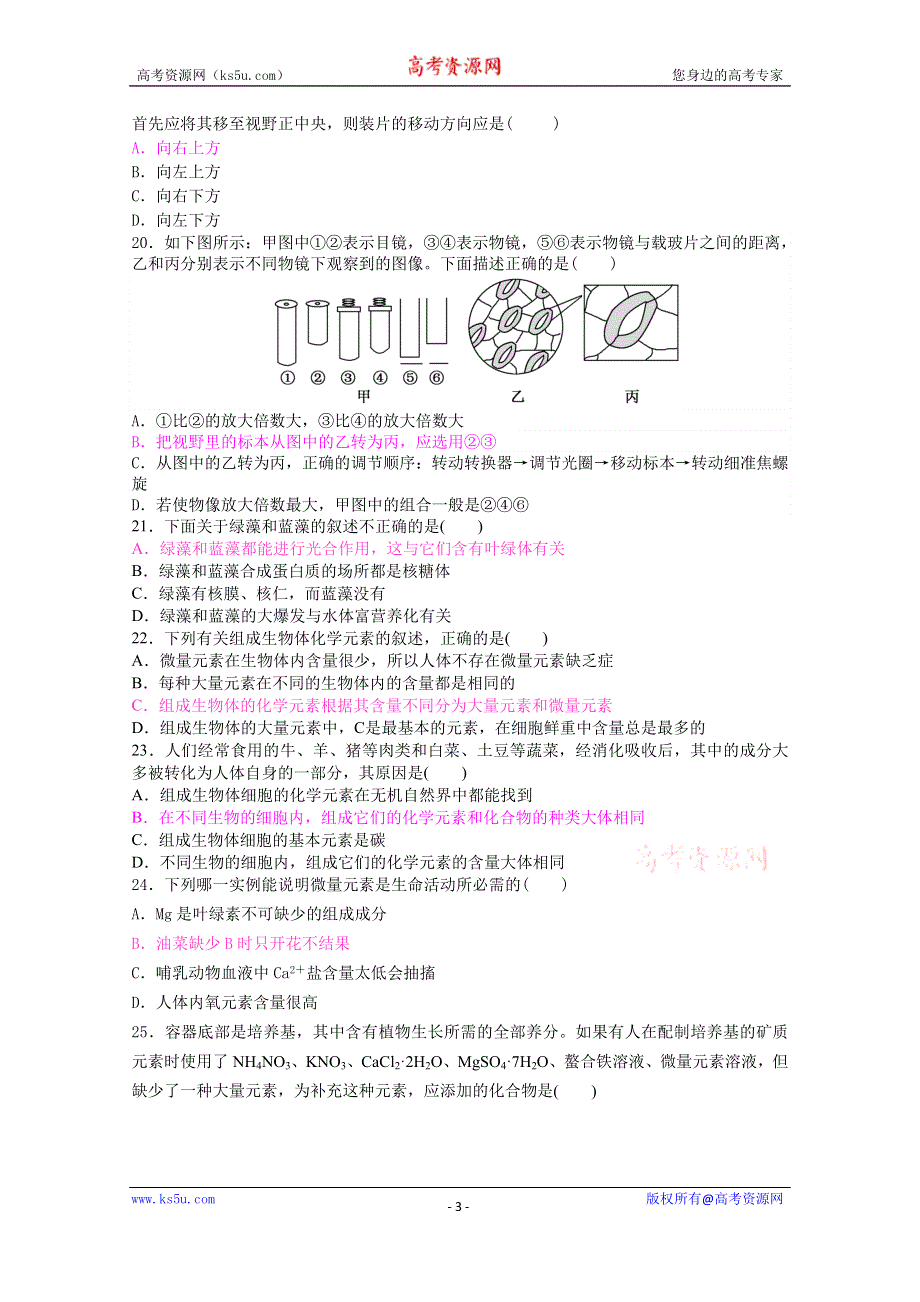 高考资源网（ks5u.com）
高考资源网
您身边的高考专家
首先应将其移至视野正中央，则装片的移动方向应是(　　)
A．向右上方
B．向左上方
C．向右下方
D．向左下方
20．如下图所示：甲图中①②表示目镜，③④表示物镜，⑤⑥表示物镜与载玻片之间的距离，
乙和丙分别表示不同物镜下观察到的图像。下面描述正确的是(　　)
① ② ③ ④ ⑤ ⑥
甲 乙 丙
A．①比②的放大倍数大，③比④的放大倍数大
B．把视野里的标本从图中的乙转为丙，应选用②③
C．从图中的乙转为丙，正确的调节顺序：转动转换器→调节光圈→移动标本→转动细准焦螺
旋
D．若使物像放大倍数最大，甲图中的组合一般是②④⑥
21．下面关于绿藻和蓝藻的叙述不正确的是(　　)
A．绿藻和蓝藻都能进行光合作用，这与它们含有叶绿体有关
B．绿藻和蓝藻合成蛋白质的场所都是核糖体
C．绿藻有核膜、核仁，而蓝藻没有
D．绿藻和蓝藻的大爆发与水体富营养化有关
22．下列有关组成生物体化学元素的叙述，正确的是(　　)
A．微量元素在生物体内含量很少，所以人体不存在微量元素缺乏症
B．每种大量元素在不同的生物体内的含量都是相同的
C．组成生物体的化学元素根据其含量不同分为大量元素和微量元素
D．组成生物体的大量元素中，C是最基本的元素，在细胞鲜重中含量总是最多的
23．人们经常食用的牛、羊、猪等肉类和白菜、土豆等蔬菜，经消化吸收后，其中的成分大
多被转化为人体自身的一部分，其原因是(　　)
A．组成生物体细胞的化学元素在无机自然界中都能找到
B．在不同生物的细胞内，组成它们的化学元素和化合物的种类大体相同
C．组成生物体细胞的基本元素是碳
D．不同生物的细胞内，组成它们的化学元素的含量大体相同
高考资源网
24．下列哪一实例能说明微量元素是生命活动所必需的(　　)
A．Mg是叶绿素不可缺少的组成成分
B．油菜缺少B时只开花不结果
C．哺乳动物血液中Ca²⁺盐含量太低会抽搐
D．人体内氧元素含量很高
25．容器底部是培养基，其中含有植物生长所需的全部养分。如果有人在配制培养基的矿质
元素时使用了NH₄NO₃、KNO₃、CaCl₂·2H₂O、MgSO₄·7H₂O、螯合铁溶液、微量元素溶液，但
缺少了一种大量元素，为补充这种元素，应添加的化合物是(　　)
www.ks5u.com
- 3 -
版权所有@高考资源网